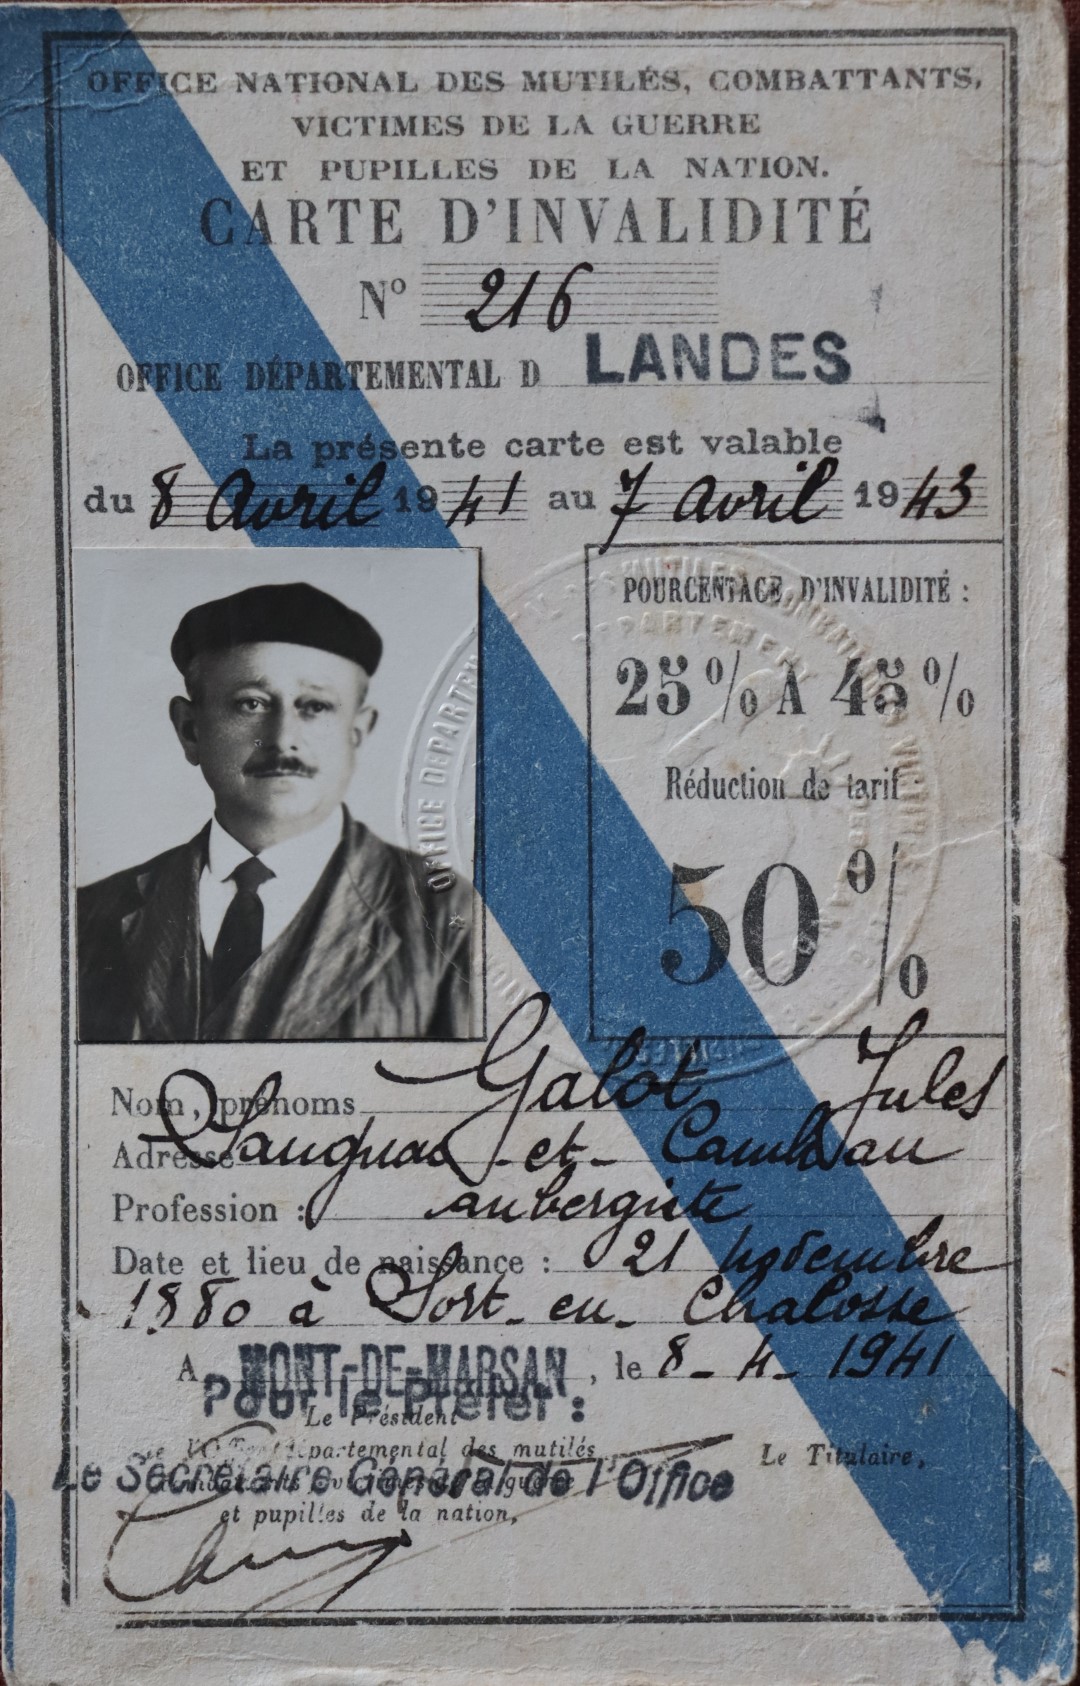 OFFICE NATIONAL DES MUTILÉS, COMBATTANTS,
VICTIMES DE LA GUERRE
ET PUPILLES DE LA NATION.
CARTE D'INVALIDITÉ
Nº 216
OFFICE DÉPARTEMENTAL D LANDES
La présente carte est valable
du 8 Avril 1941 au 7 Avril 1943
POURCENTAGE D'INVALIDITÉ :
25% A 45%
Réduction de tarif
50%
OFFICE DEPARTEM
Nom, prénoms Galot Jules
Adresse et Cambran
Profession : aubergiste
Date et lieu de naissance : 21 novembre
1880 à Sort-en-Chalosse
A MONT-DE-MARSAN, le 8-4-1941
Pour le Préfet :
Le Président
départemental des mutilés
Le Titulaire,
Le Secrétaire Général de l'Office
et pupilles de la nation,